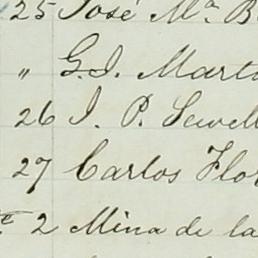 25 José Mª B
" G. J. Mart
26 J. P. Sewell
27 Carlos Flo
2 Mina de la